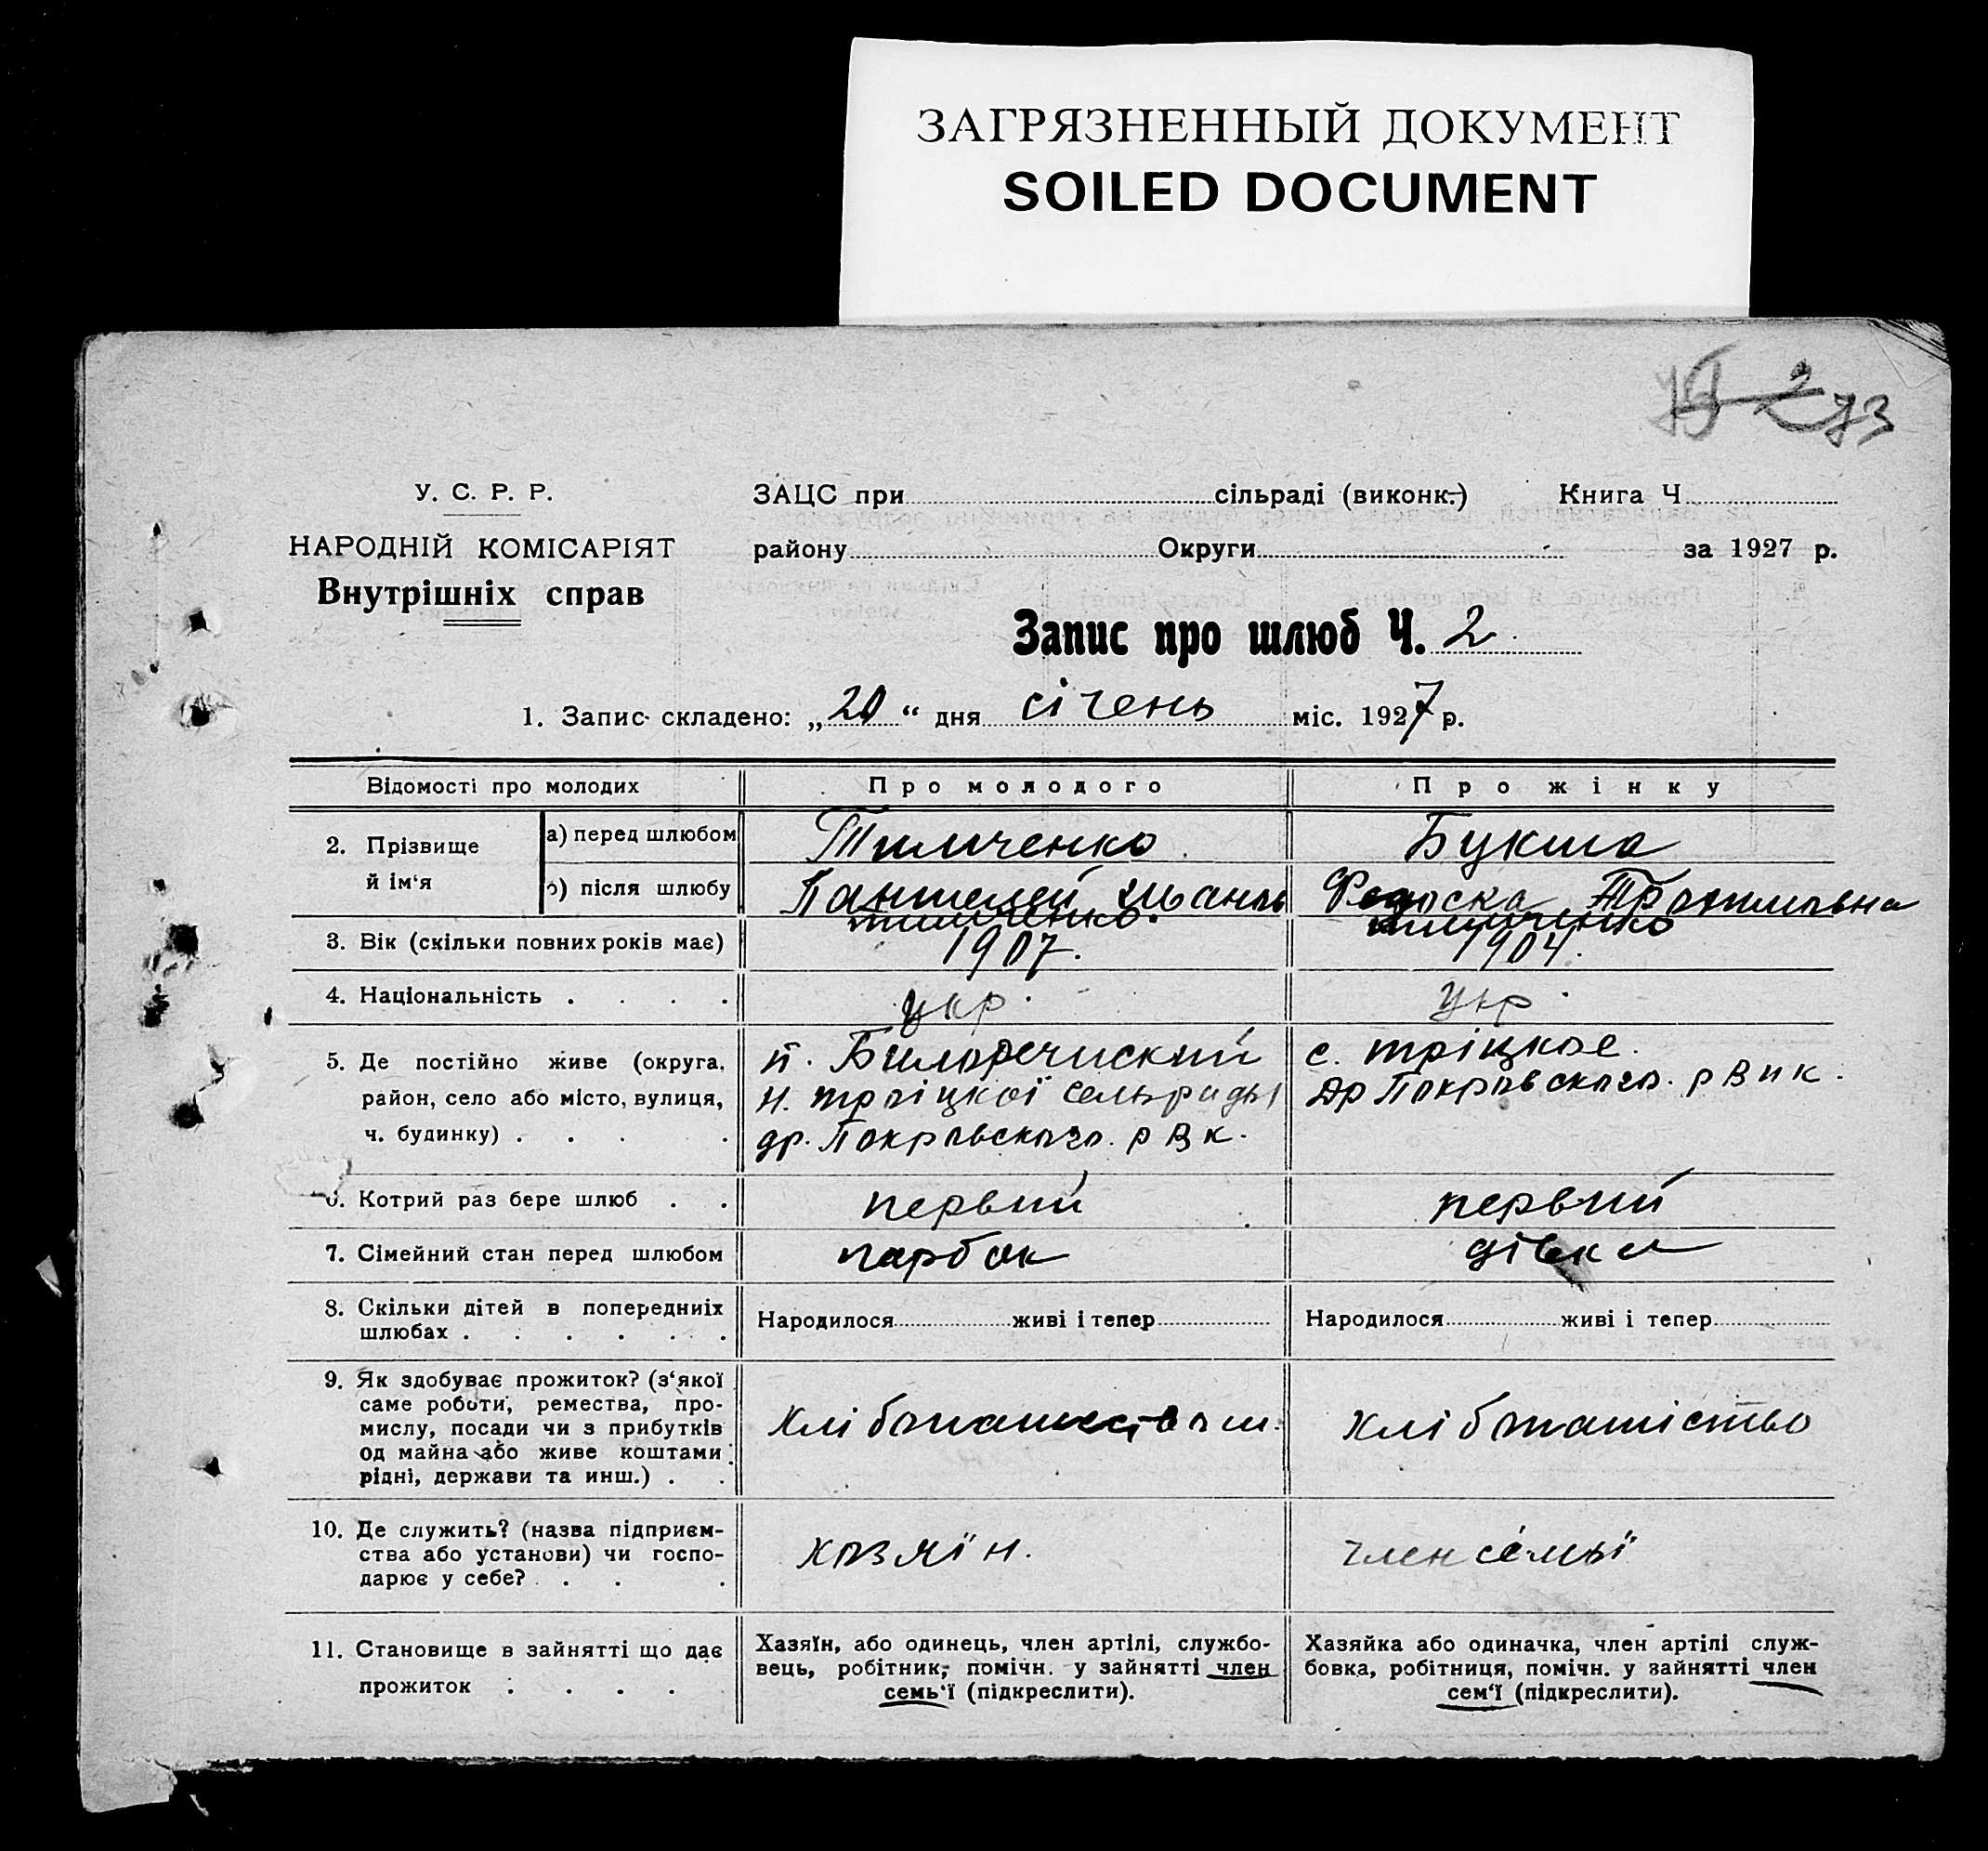 ЗАГРЯЗНЕННЫЙ ДОКУМЕНТ
SOILED DOCUMENT
2 73
У. С. Р. Р.
НАРОДНІЙ КОМІСАРІЯТ
Внутрішніх справ
ЗАЦС при сільраді (виконк.) Книга Ч.
району Округи за 1927 р.
Запис про шлюб Ч. 2
1. Запис складено: „20“ дня січень міс. 1927 р.
Відомості про молодих Про молодого Про жінку
2. Прізвище й ім‘я
а) перед шлюбом Тимченко Букша
б) після шлюбу Пантелей Федоска
тимченко тимченко
3. Вік (скільки повних років має) 1907. 1904.
4. Національність . . . . укр. укр.
5. Де постійно живе (округа, район, село або місто, вулиця, ч. будинку) . . . .
н. троіцкої сельради
др. Покровскаго. рвк.
с. тріцкое.
др Покровскаго. рвик.
6. Котрий раз бере шлюб . . первий первий
7. Сімейний стан перед шлюбом парбок дівка
8. Скільки дітей в попередниіх шлюбах . . . . . .
Народилося живі і тепер Народилося живі і тепер
9. Як здобуває прожиток? (з‘якої
саме роботи, ремества, про-
мислу, посади чи з прибутків
од майна або живе коштами
рідні, держави та инш.) . .
хлібопашеством. хлібопашіство
10. Де служить? (назва підприєм-
ства або установи) чи госпо-
дарює у себе? . . .
хозяїн. член семьї
11. Становище в зайнятті що дає
прожиток . . . .
Хазяїн, або одинець, член артілі, службо-
вець, робітник, помічн. у зайнятті член
семь‘ї (підкреслити).
Хазяйка або одиначка, член артілі служ-
бовка, робітниця, помічн. у зайнятті член
сем‘ї (підкреслити).